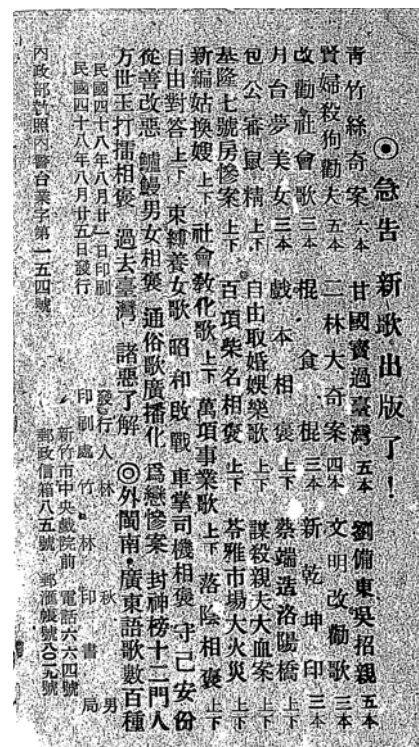 ◉急告 新歌出版了！
青竹絲奇案 六本 甘國寶過臺灣 五本 劉備東吳招親 五本
賢婦殺狗勸夫 五本 二林大奇案 四本 文明改勸歌 三本
改勸社會歌 三本 棍食棍 三本 新乾坤印 三本
月台夢美女 三本 戲本相褒 上下 蔡端造洛陽橋 上下
包公審鼠精 上下 自由取婚娛樂歌 上下 謀殺親夫大血案 上下
基隆七號房慘案 上下 百項柴名相褒 上下 苓雅市場大火災 上下
新編姑換嫂 上下 社會教化歌 上下 萬項事業歌 上下 落陰相褒 上下
自由對答 上下 束縛養女歌 昭和敗戰 車掌司機相褒 守己安份
從善改惡 鱸鰻男女相褒 通俗歌廣播化 爲戀慘案 封神榜十二門人
方世玉打擂相褒 過去臺灣 諸惡了解 ◎外閩南，廣東語歌數百種
民國四十八年八月廿一日印刷
民國四十八年八月廿五日發行
發行人 林秋男
印刷處 竹林印書局
內政部登照內警台業字第一五四號
新竹市中央戲院前 電話六六四號
郵政信箱八五號 郵滙帳號六〇二九號